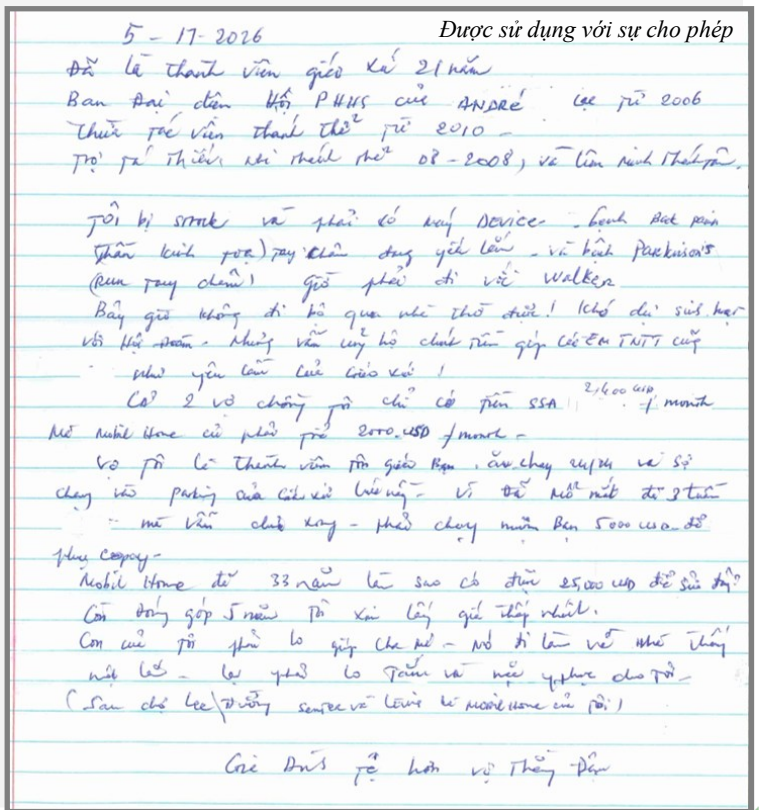 Được sử dụng với sự cho phép
5-17-2026
Đã là thành viên giáo xứ 21 năm
Ban Đại diện Hội PHHS của ANDRÉ Lạc Từ 2006
Thừa tác viên thánh thể Từ 2010 -
Trợ tá Thiếu nhi thánh thể 08-2008, và
Tôi bị stroke và phải có máy Device - bệnh Back pain
Thần kinh tọa) Tay chân đang yếu lắm - và bệnh Parkinson's
(Run tay chân) giờ phải đi với Walker
Bây giờ không đi bộ qua nhà thờ được! Khó dự sinh hoạt
với Hội Đoàn - Nhưng vẫn ủng hộ chút tiền giúp các EM TNTT cũng
như yêu cầu của Giáo xứ!
Cả 2 vợ chồng tôi chỉ có tiền SSA 2,400 USD / month
Mà Mobil Home cũ phải trả 2000.USD / month -
Vợ tôi là Thành viên tôn giáo Bạn, ăn chay và sợ
chạy vào parking của Giáo xứ - vì Đã mổ mắt đã 3 tuần
mà vẫn chưa xong - phải chạy mượn Bạn 5000 USD để
phụ copay -
Mobil Home đã 33 năm làm sao có được 25,000 USD để sửa đây?
Còn đóng góp 5 năm tôi xin lấy giá thấp nhất.
Con của tôi phải lo giúp cha mẹ - Nó đi làm về nhà thấy
mệt lả - lại phải lo Tắm và mặc y phục cho Tôi -
(Sau chợ Lee, Đường Senter và Mobil Home của tôi)